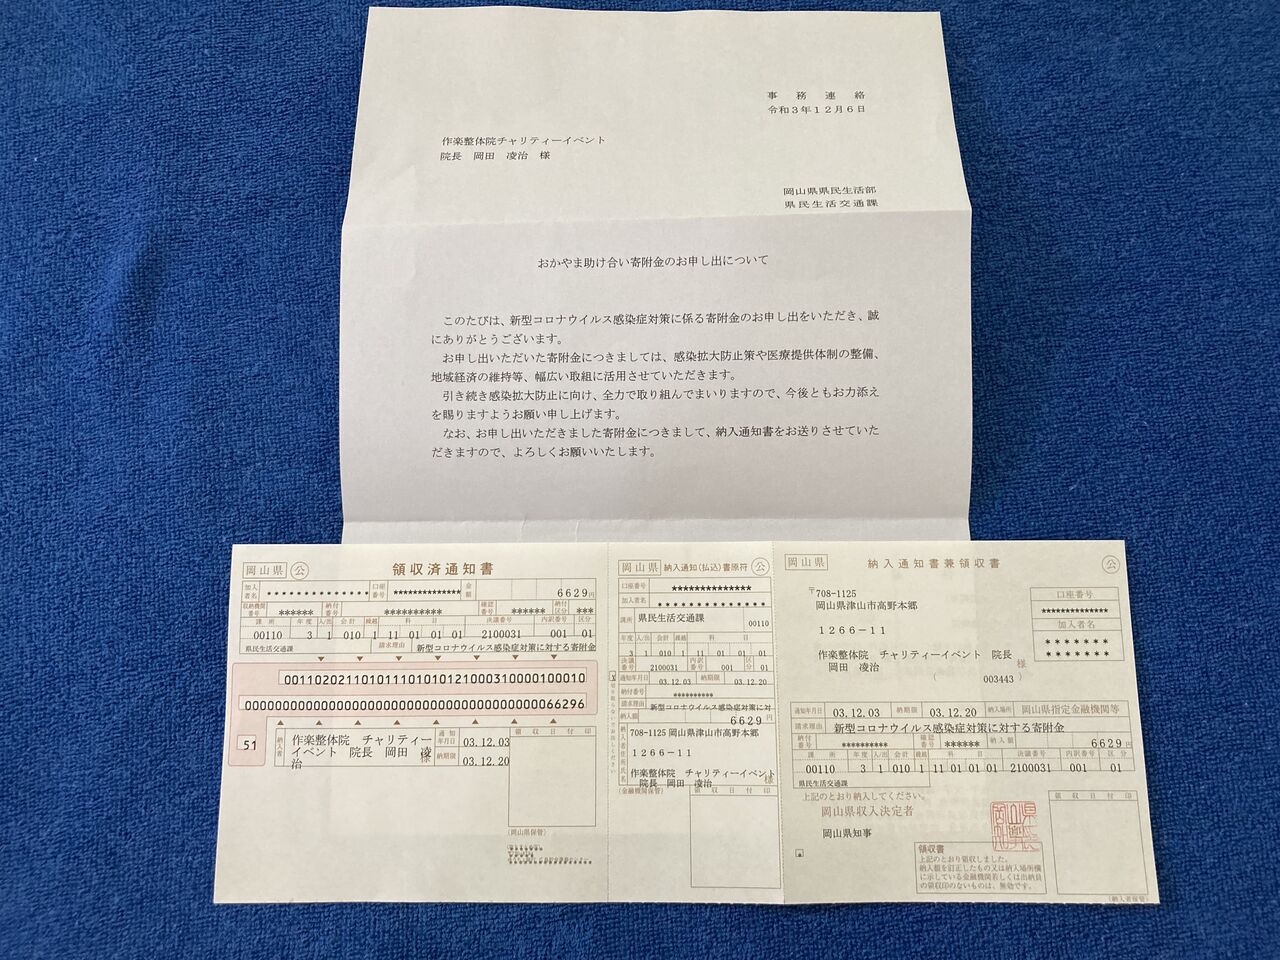 事務連絡
令和3年12月6日
作楽整体院チャリティーイベント
院長　岡田　凌治　様
岡山県県民生活部
県民生活交通課
おかやま助け合い寄附金のお申し出について
このたびは、新型コロナウイルス感染症対策に係る寄附金のお申し出をいただき、誠
にありがとうございます。
お申し出いただいた寄附金につきましては、感染拡大防止策や医療提供体制の整備、
地域経済の維持等、幅広い取組に活用させていただきます。
引き続き感染拡大防止に向け、全力で取り組んでまいりますので、今後ともお力添え
を賜りますようお願い申し上げます。
なお、お申し出いただきました寄附金につきまして、納入通知書をお送りさせていた
だきますので、よろしくお願いいたします。
岡山県　公　領収済通知書
加入者名　**************　口座番号　**************　金額　6629円
収納機関番号　******　納付番号　**********　確認番号　******　納付区分　***
課所　年度　入/出　会計　繰越　科目　決議番号　内訳番号　区分
00110　3　1　010　1　11　01　01　01　2100031　001　01
県民生活交通課　請求理由　新型コロナウイルス感染症対策に対する寄附金
001102021101011101010101210003100001000010
0000000000000000000000000000000000000066296
51
納入者　作楽整体院　チャリティー
イベント　院長　岡田　凌
治　様
通知年月日　03.12.03
納期限　03.12.20
領収日付印
(岡山県保管)
岡山県　納入通知(払込)書原符　公
口座番号　**************
加入者名　**************
課所　県民生活交通課　00110
年度　入/出　会計　繰越　科目
3　1　010　1　11　01　01　01
決議番号　2100031　内訳番号　001　区分　01
通知年月日　03.12.03　納期限　03.12.20
納付番号　**********
請求理由　新型コロナウイルス感染症対策に対
納入額　6629円
納入者住所氏名
708-1125 岡山県津山市高野本郷
1266-11
作楽整体院　チャリティーイベント
院長　岡田　凌治　様
(金融機関保管)
領収日付印
岡山県　納入通知書兼領収書　公
〒708-1125
岡山県津山市高野本郷
1266-11
作楽整体院　チャリティーイベント　院長
岡田　凌治　様
(　003443　)
口座番号
**************
加入者名
*******
*******
通知年月日　03.12.03　納期限　03.12.20　納入場所　岡山県指定金融機関等
請求理由　新型コロナウイルス感染症対策に対する寄附金
納付番号　**********　確認番号　******　納入額　6629円
課所　年度　入/出　会計　繰越　科目　決議番号　内訳番号　区分
00110　3　1　010　1　11　01　01　01　2100031　001　01
県民生活交通課
上記のとおり納入してください。
岡山県収入決定者
岡山県知事
領収書
上記のとおり領収しました。
納入額を訂正したもの又は納入場所欄
に示している金融機関若しくは出納員
の領収印のないものは、無効です。
領収日付印
(納入者保管)